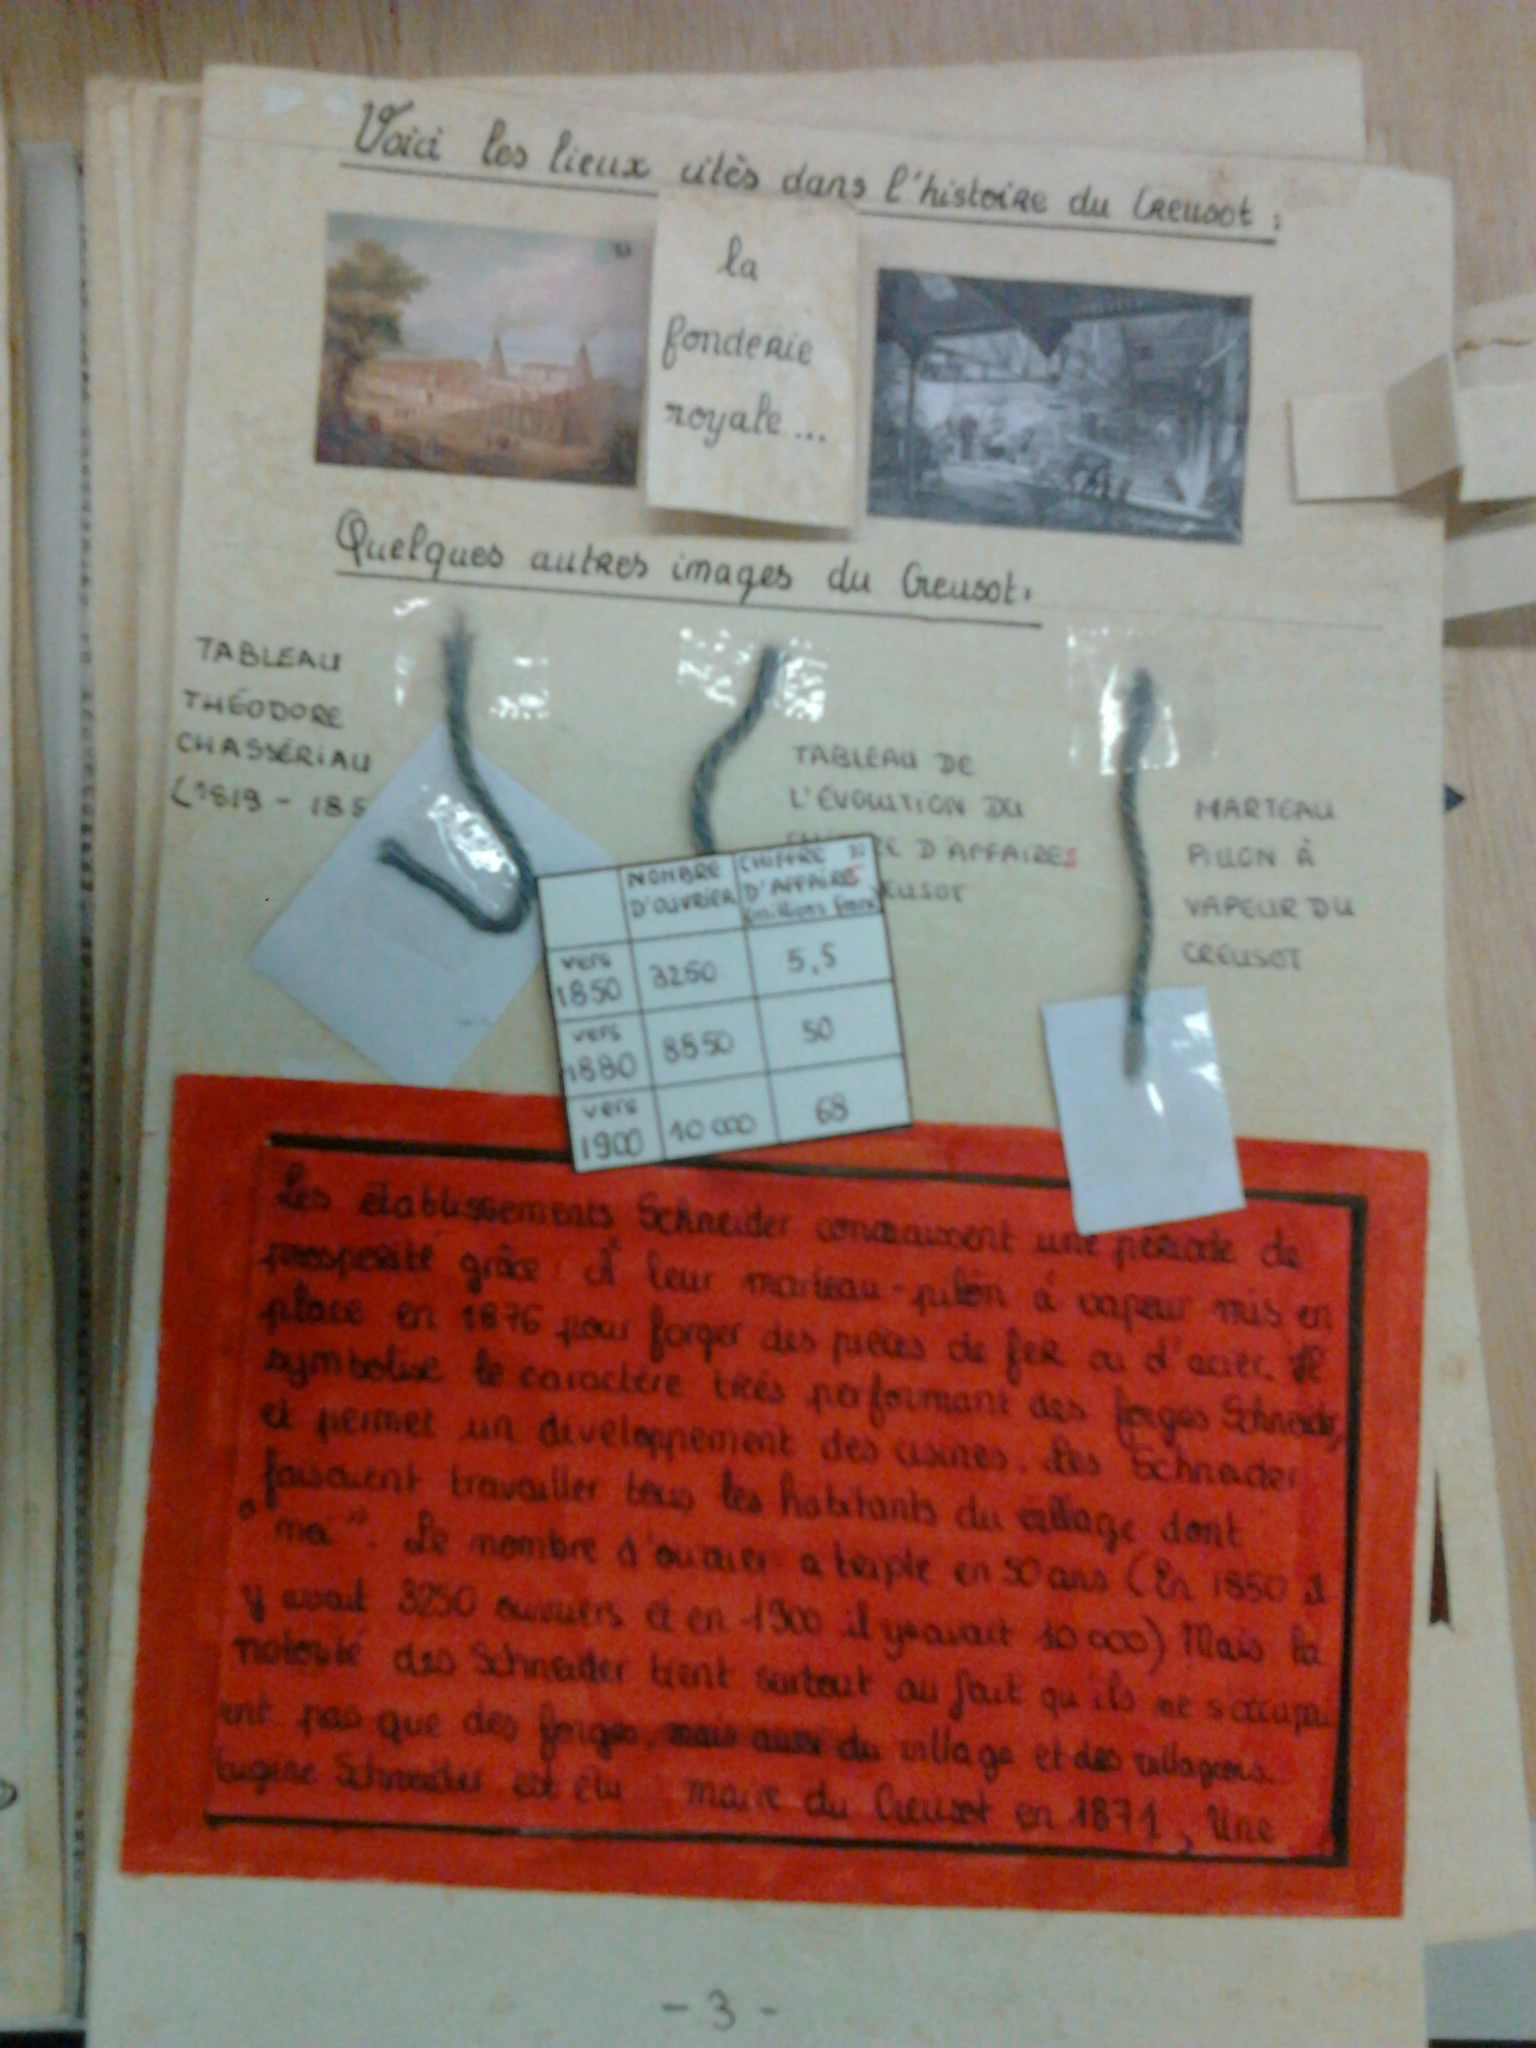 Voici les lieux cités dans l'histoire du Creusot :
la
fonderie
royale...
Quelques autres images du Creusot :
TABLEAU
THÉODORE
CHASSÉRIAU
(1819 - 185
TABLEAU DE
L'ÉVOLUTION DU
D'AFFAIRES
MARTEAU
PILLON À
VAPEUR DU
CREUSOT
NOMBRE D'OUVRIER CHIFFRE D'AFFAIRES (millions franc)
vers 1850 3250 5,5
vers 1880 8850 50
vers 1900 10 000 68
Les établissements Schneider connaissent une période de
prospérité grâce À leur marteau-pilon à vapeur mis en
place en 1876 pour forger des pièces de fer ou d'acier. Il
symbolise le caractère très performant des forges Schneider,
et permet un développement des usines. Les Schneider
faisaient travailler tous les habitants du village dont
"moi". Le nombre d'ouvrier a triplé en 50 ans (En 1850 il
y avait 3250 ouvriers et en 1900 il y avait 10 000) Mais la
notoriété des Schneider tient surtout au fait qu'ils ne s'occupai
ent pas que des forges, mais aussi du village et des villageois.
Eugène Schneider est élu maire du Creusot en 1871, Une
- 3 -